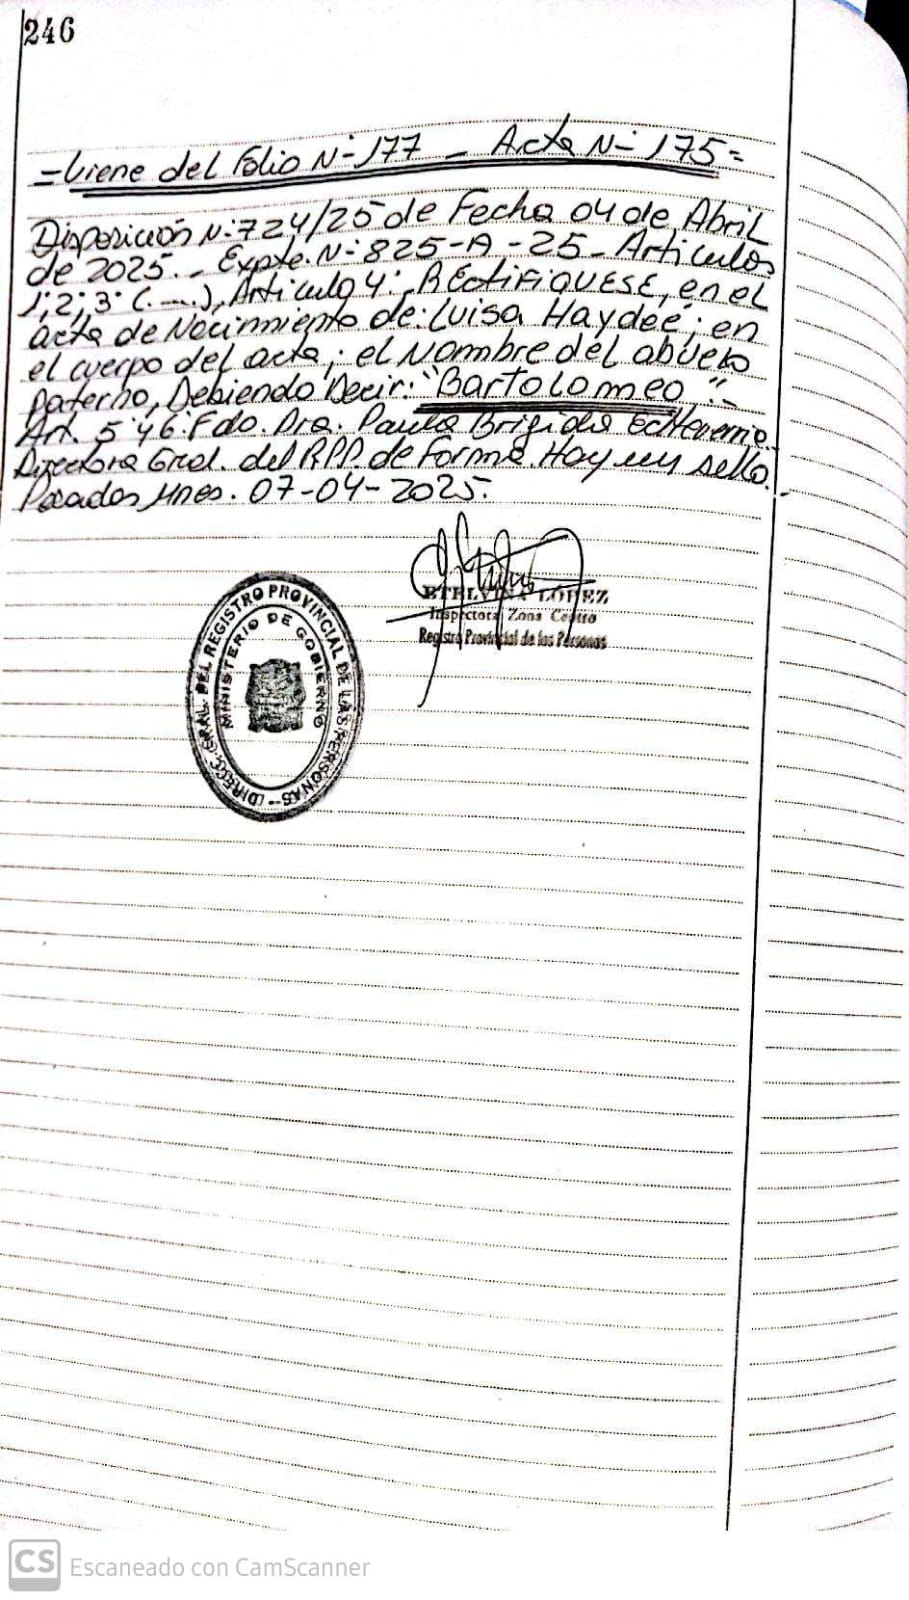 246
=Viene del Folio N-177 - Acta N- 175=
Disposición N:724/25 de Fecha 04 de Abril
de 2025.- Expte. N: 825-A-25- Articulos
1; 2; 3° (.....), Articulo 4: RECtifIQUESE, en el
acta de Nacimmiento de: Luisa Haydee; en
el cuerpo del acta; el Nombre del abuelo
paterno, Debiendo Decir: "Bartolomeo".-
Art. 5 y 6: Fdo. Dra. Paula Brigida Echeverria
Directora Gral. del RPP. de forma. Hay un sello.
Posadas Mnes. 07-04-2025.
ETELVINA LOPEZ
Inspectora Zona Centro
Registro Provincial de las Personas
DIREC. GRAL. DEL REGISTRO PROVINCIAL DE LAS PERSONAS
MINISTERIO DE GOBIERNO
CS Escaneado con CamScanner